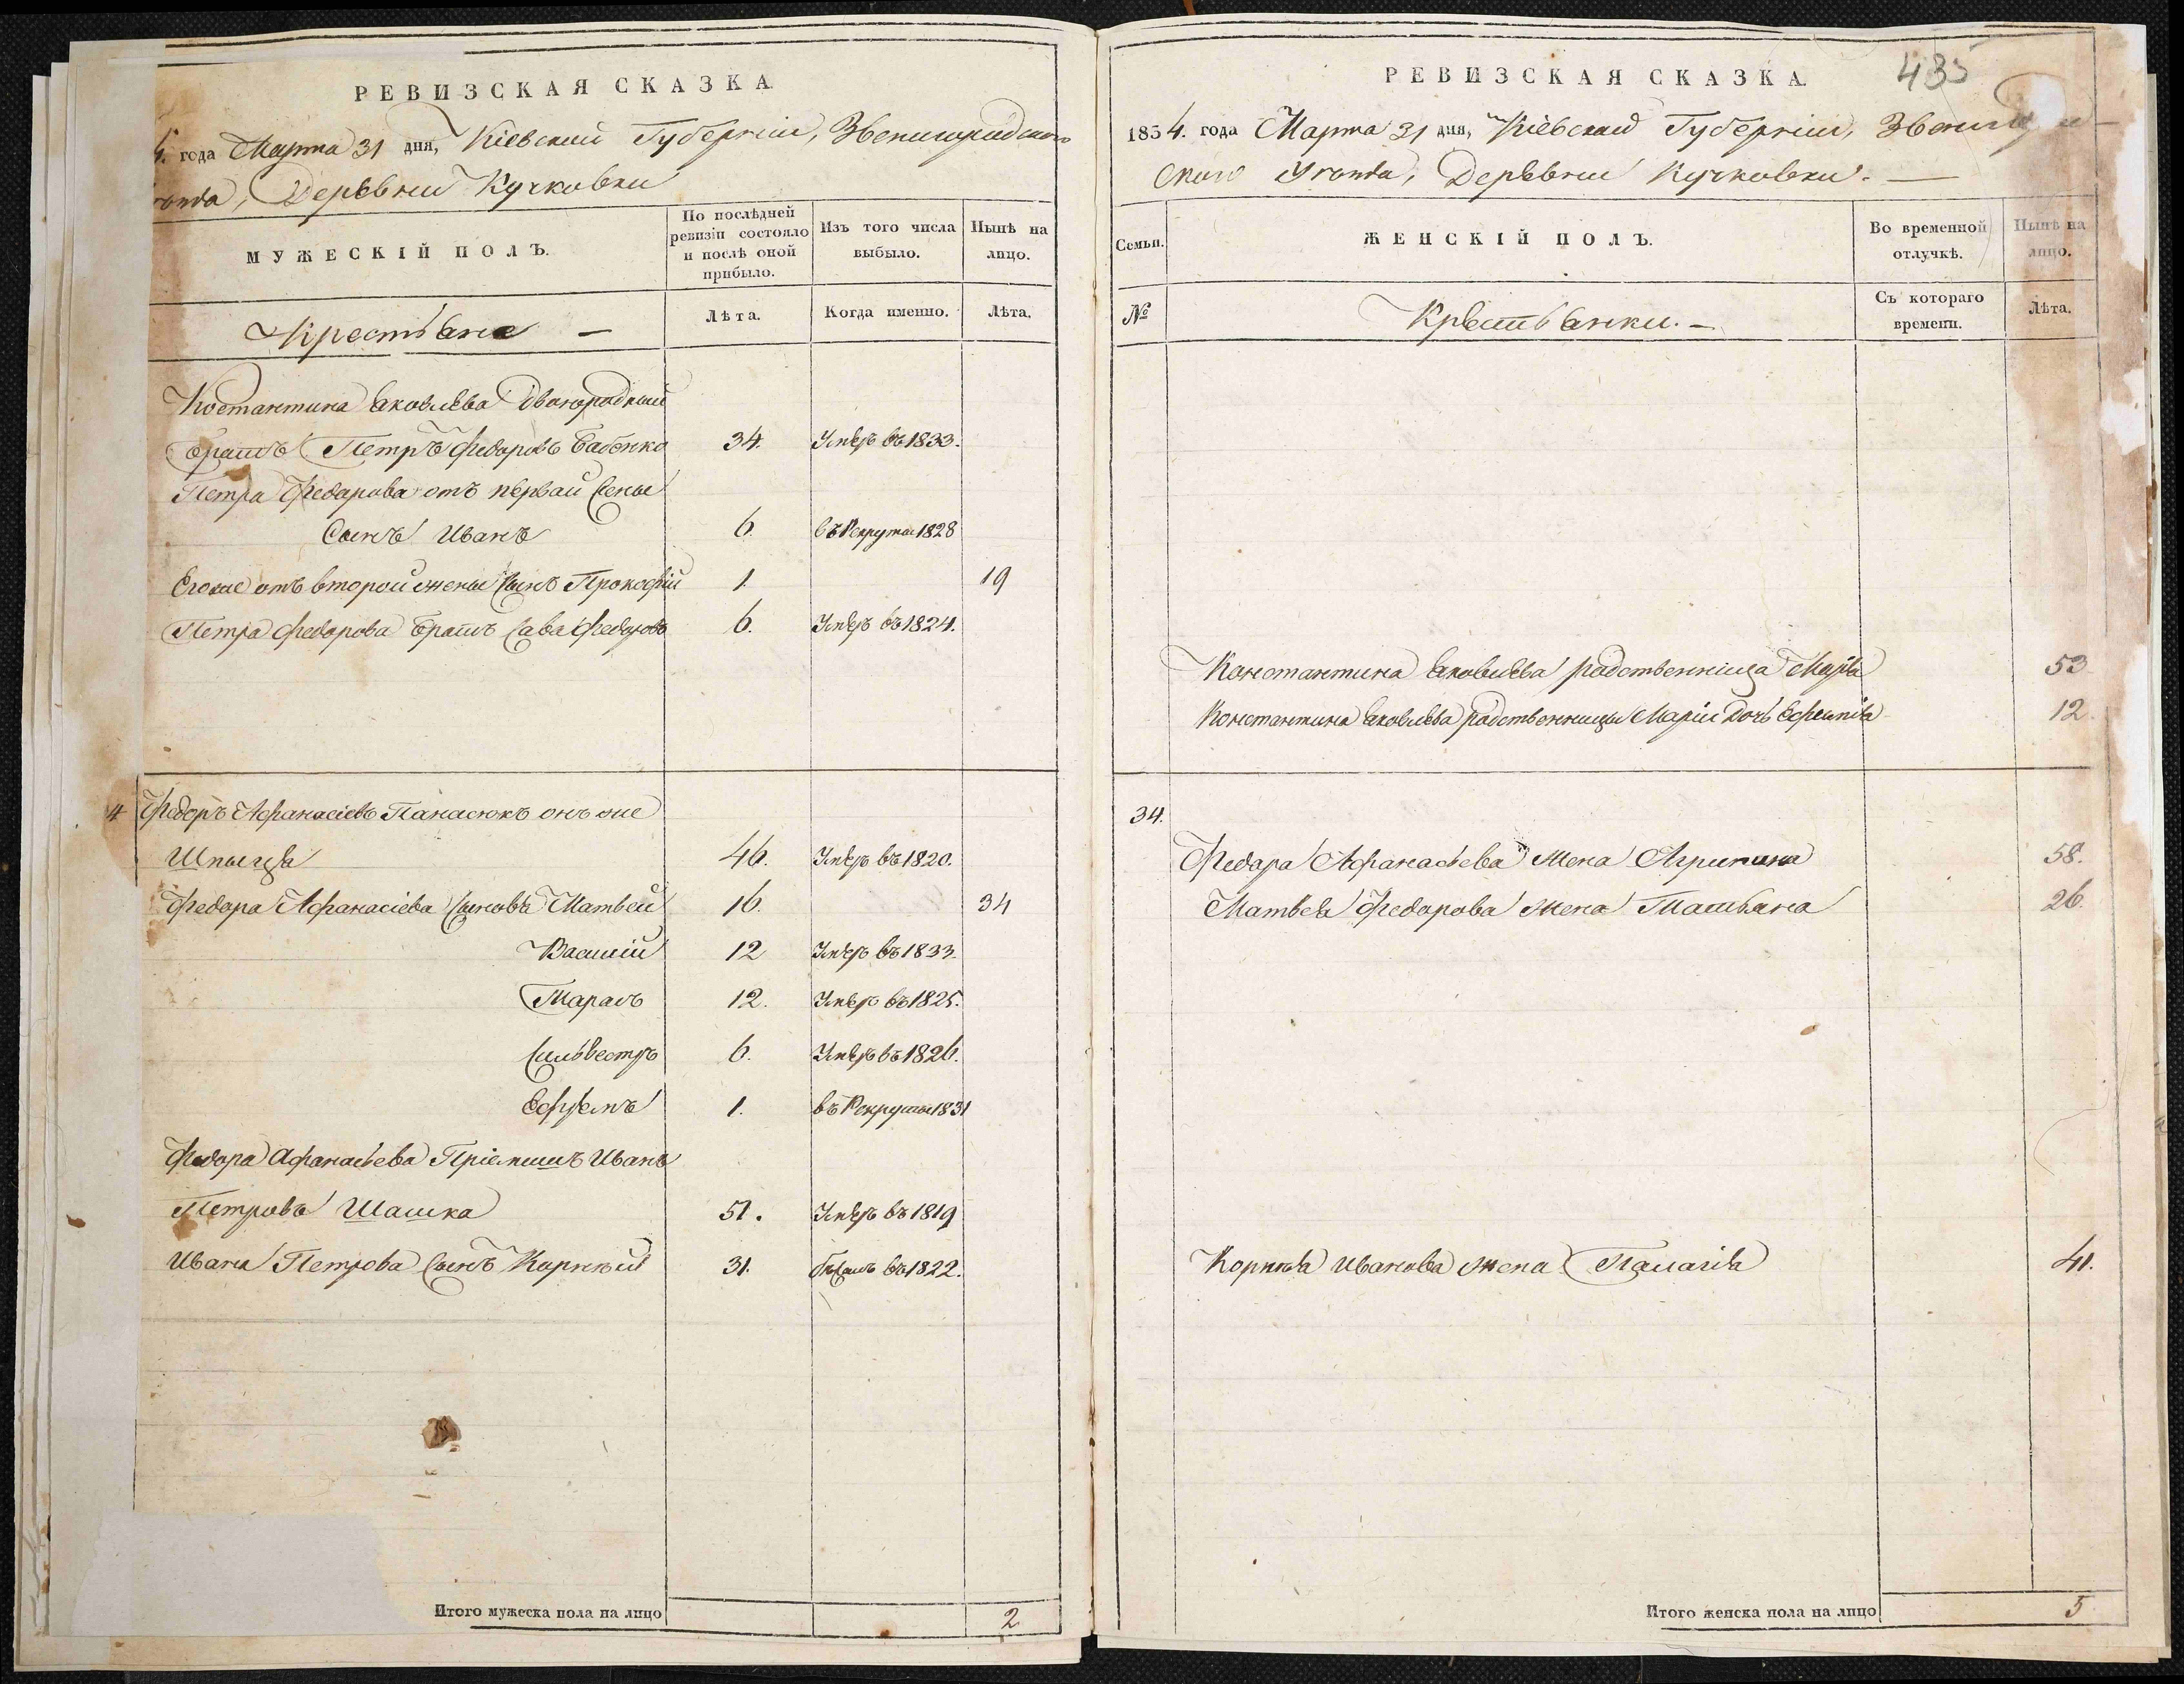 РЕВИЗСКАЯ СКАЗКА
4. года Марта 31 дня, Кіевский Губерніи, Звенигородскаго
уезда, Деревни Кучковки
МУЖЕСКІЙ ПОЛЪ.
По послѣдней ревизіи состояло и послѣ оной прибыло.
Изъ того числа выбыло.
Нынѣ на лицо.
Крестьяне —
Лѣта.
Когда именно.
Лѣта.
Костантина Яковлева двоюродный
братъ Петръ Федоровъ Бабенко 34. Умеръ въ 1833.
Петра Федарова отъ первой жены
Сынъ Иванъ 6. въ Рекруты 1828
Егоже отъ второй жены сынъ Прокофій 1. 19
Петра Федорова братъ Сава Федоровъ 6. Умеръ въ 1824.
4 Федоръ Афанасіевъ Панасюкъ онъ же
Шпыця 46. Умеръ въ 1820.
Федора Афанасіева сыновья Матвей 16. 34
Василій 12 Умеръ въ 1833.
Тарасъ 12. Умеръ въ 1825.
Сильвестръ 6. Умеръ въ 1826.
Ефремъ 1. въ Рекруты 1831
Федора Афанасьева Пріемышъ Иванъ
Петровъ Шашка 51. Умеръ въ 1819
Ивана Петрова сынъ Корней 31. бежалъ въ 1822.
Итого мужеска пола на лицо 2
РЕВИЗСКАЯ СКАЗКА
435
1834. года Марта 31 дня, Кіевский Губерніи, Звениго
скаго Уезда, Деревни Кучковки. —
Семьи.
ЖЕНСКІЙ ПОЛЪ.
Во временной отлучкѣ.
Нынѣ на лицо.
№
Крестьянки. —
Съ котораго времени.
Лѣта.
Константина Яковлева родственница Марья 53
Константина Яковлева родственницы Маріи дочь Ефимія 12.
34.
Федора Афанасьева жена Агрипина 58.
Матвея Федорова жена Татьяна 26.
Корнея Иванова жена Палагія 41.
Итого женска пола на лицо 5